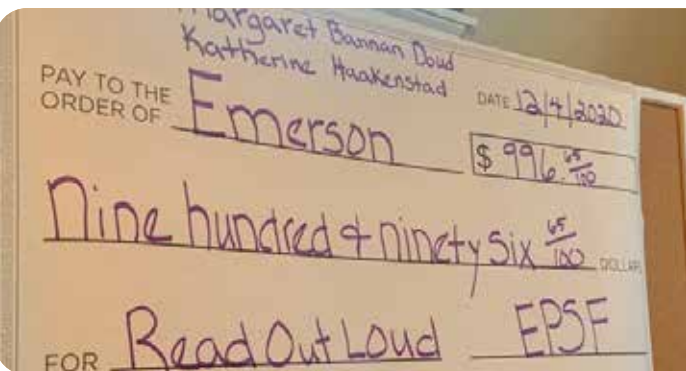 Margaret Bannan Doud
Katherine Haakenstad
DATE 12/4/2020
PAY TO THE
ORDER OF Emerson $ 996.65/100
Nine hundred & ninety six 65/100 DOLLARS
FOR Read Out Loud EPSF